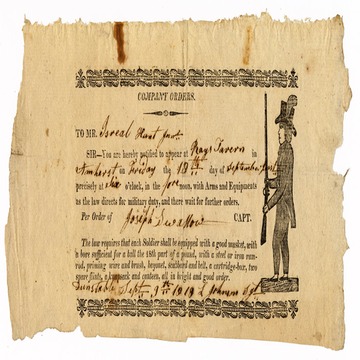 COMPANY ORDERS.
TO MR. Isreal Hunt junr.
SIR—You are hereby notified to appear at Rays Tavern in
Amherst on Friday the 18th day of September next
precisely at six o'clock, in the fore noon, with Arms and Equipments
as the law directs for military duty, and there wait for further orders.
Per Order of Joseph Swallow CAPT.
The law requires that each Soldier shall be equipped with a good musket, with
a bore sufficient for a ball the 18th part of a pound, with a steel or iron ram-
rod, priming wire and brush, bayonet, scabbard and belt, a cartridge-box, two
spare flints, a knapsack and canteen, all in bright and good order.
Dunstable Sept. 9th 1819